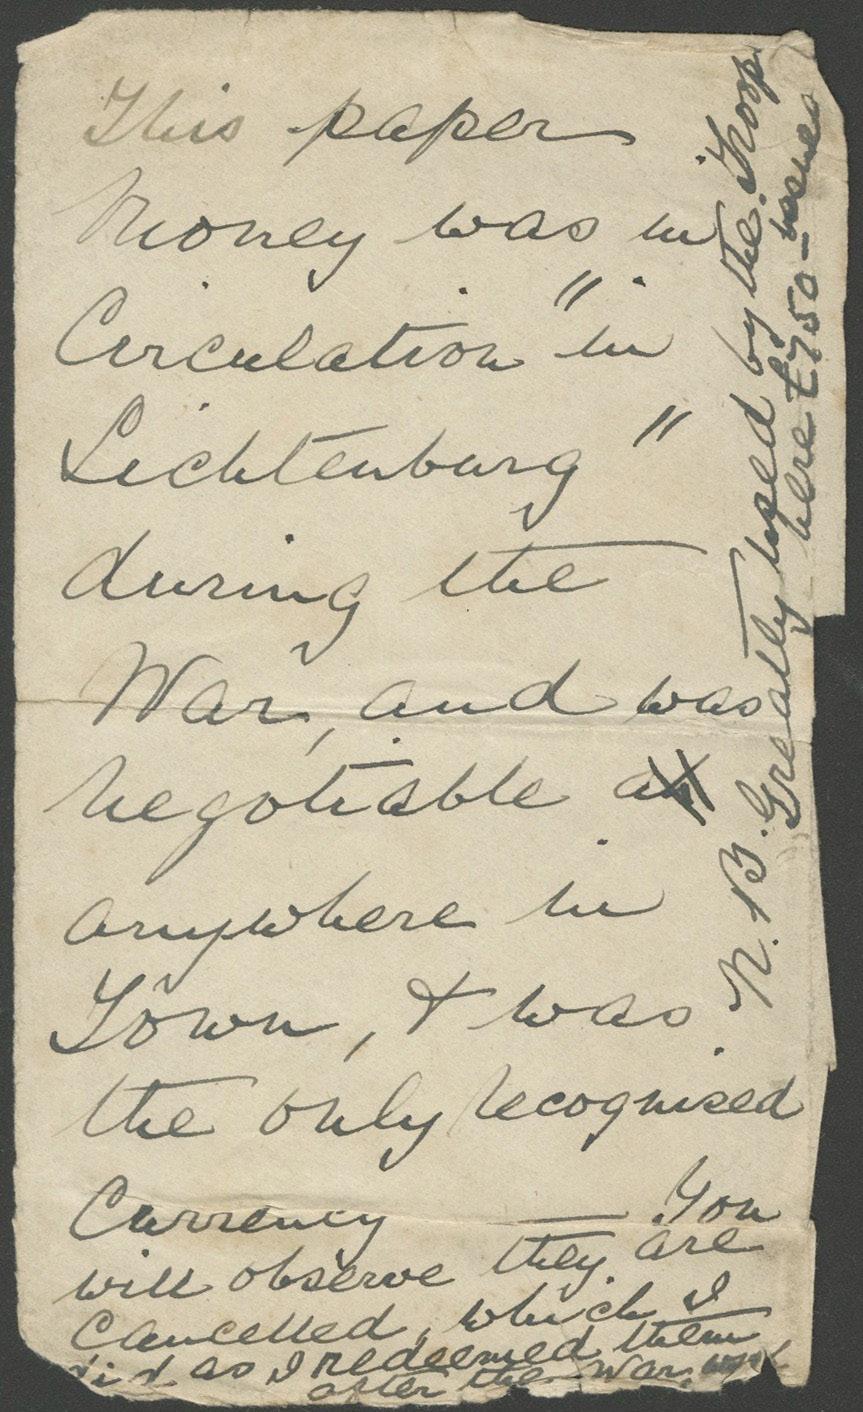 This paper
Money was in
Circulation "in
Lichtenburg"
during the
War, and was
negotiable
anywhere in
Town, & was
the only recognised
Currency — You
will observe they are
cancelled, which I
did as I redeemed them
after the War,
N.B. Greatly used by the Troops
here £750 – issued